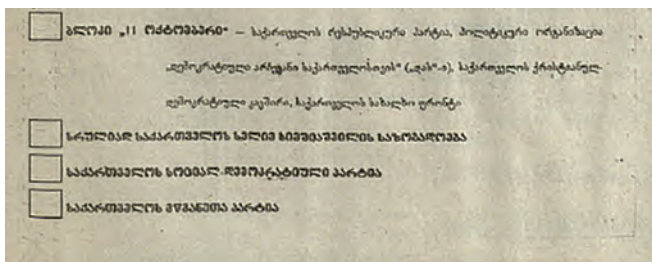 ბლოკი „11 ოქტომბერი“ — საქართველოს რესპუბლიკური პარტია, პოლიტიკური ორგანიზაცია
„დემოკრატიული არჩევანი საქართველოსთვის“ („დას“-ი), საქართველოს ქრისტიანულ-
დემოკრატიული კავშირი, საქართველოს სახალხო ფრონტი
სრულიად საქართველოს სელიმ ხიმშიაშვილის საზოგადოება
საქართველოს სოციალ-დემოკრატიული პარტია
საქართველოს მწვანეთა პარტია